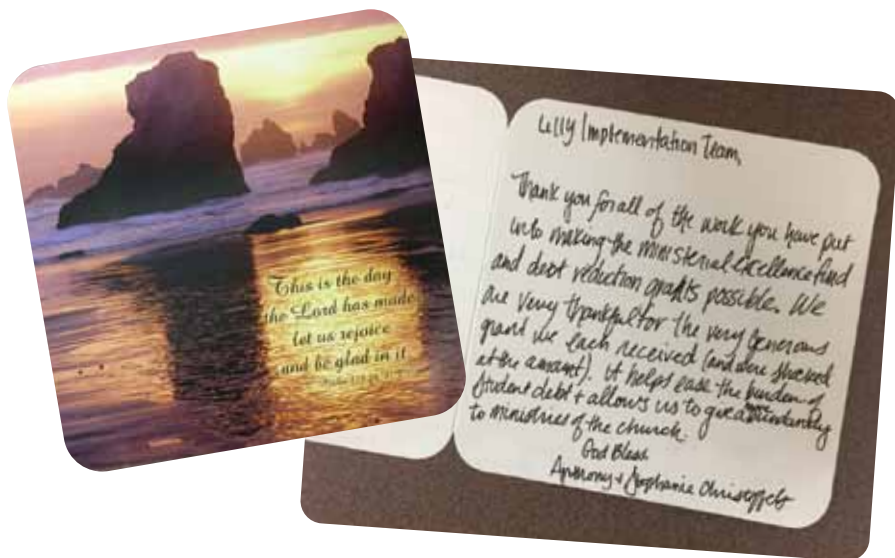 This is the day
the Lord has made
let us rejoice
and be glad in it
Lilly Implementation Team,
Thank you for all of the work you have put
into making the ministerial excellence fund
and debt reduction grants possible. We
are very thankful for the very generous
grant we each received (and were shocked
at the amount). It helps ease the burden of
student debt + allows us to give abundantly
to ministries of the church.
God Bless
Anthony + Stephanie Christoffels